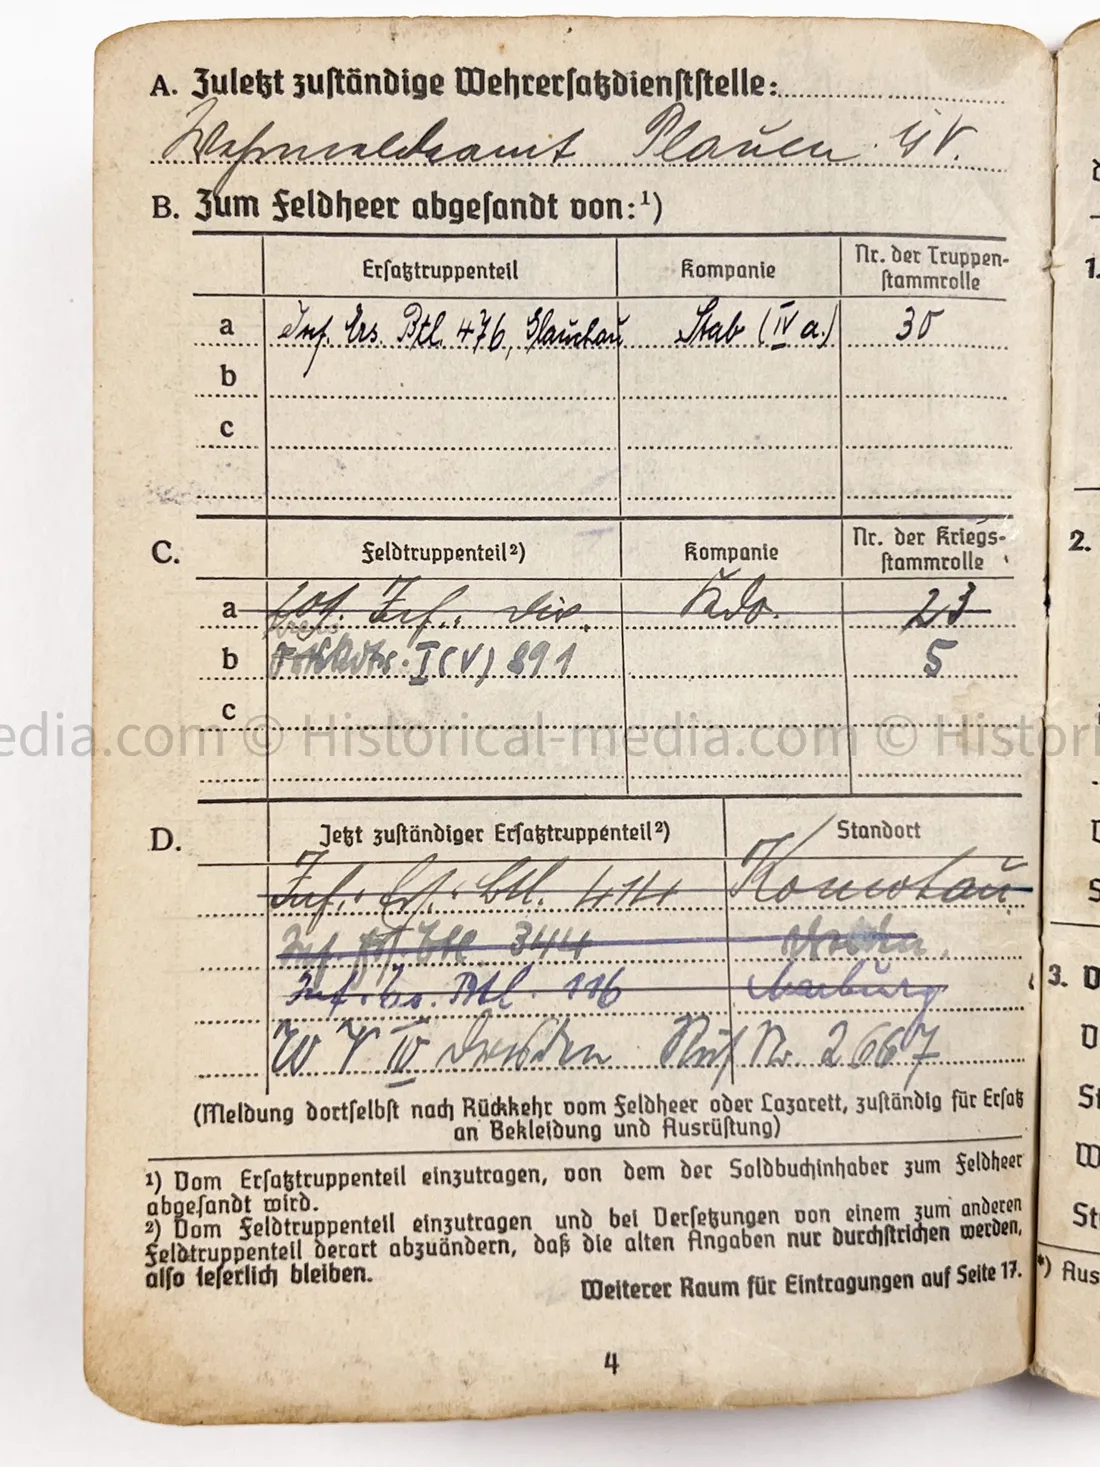 A. Zuletzt zuständige Wehrersatzdienststelle:
Wehrmeldeamt Plauen i/V.
B. Zum Feldheer abgesandt von:¹)
Ersatztruppenteil Kompanie Nr. der Truppen-
stammrolle
a Inf. Ers. Btl. 476, Glauchau Stab (IV a.) 30
b
c
C. Feldtruppenteil²) Kompanie Nr. der Kriegs-
stammrolle
a Inf. Div. Kdo. 23
Kreis
b Kdtr. I (V) 891 5
c
edia.com © Historical-media.com © Histor
D. Jetzt zuständiger Ersatztruppenteil²) Standort
Inf. Ers. Btl. 414 Komotau
Inf. Ers. Btl. 344 Dresden
Inf. Ers. Btl. 116 Marburg
W V IV Dresden Ruf Nr. 2667
(Meldung dortselbst nach Rückkehr vom Feldheer oder Lazarett, zuständig für Ersatz
an Bekleidung und Ausrüstung)
¹) Vom Ersatztruppenteil einzutragen, von dem der Soldbuchinhaber zum Feldheer
abgesandt wird.
²) Vom Feldtruppenteil einzutragen und bei Versetzungen von einem zum anderen
Feldtruppenteil derart abzuändern, daß die alten Angaben nur durchstrichen werden,
also leserlich bleiben.
Weiterer Raum für Eintragungen auf Seite 17.
4
1.
2.
3.
*) Aus